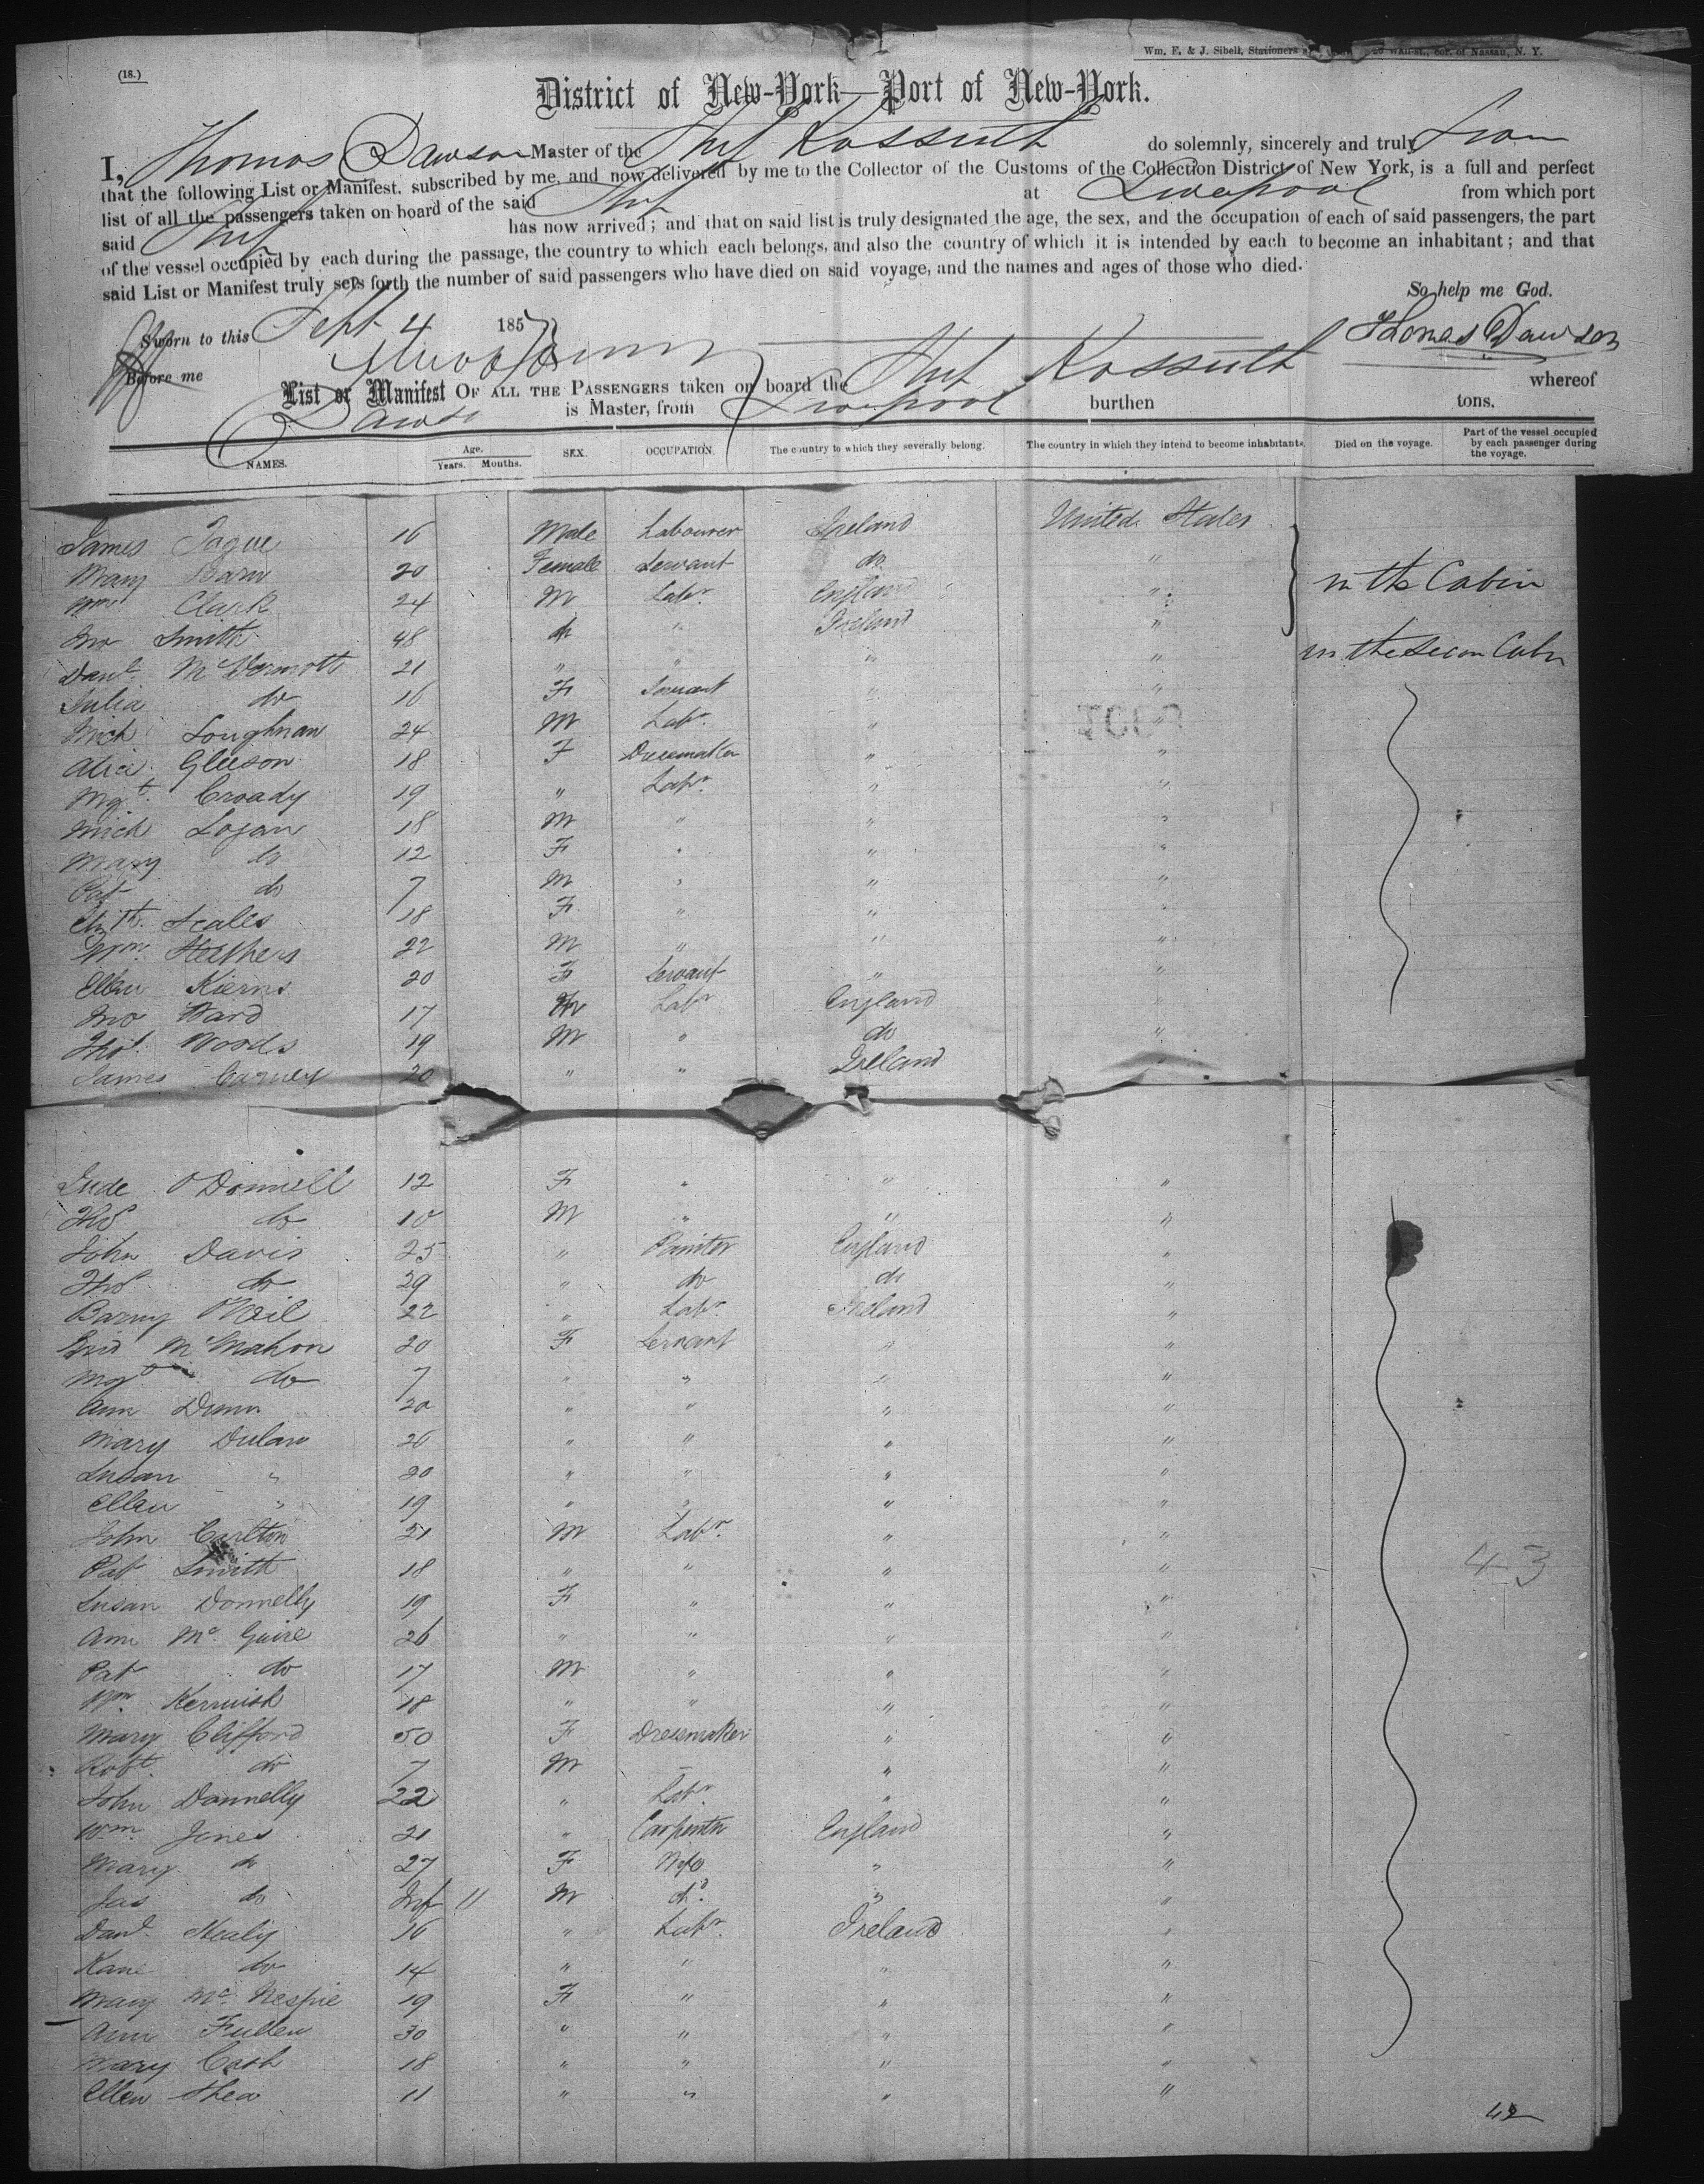 (18.)
Wm. F. & J. Sibell, Stationers Wall-st., cor. of Nassau, N. Y.
District of New-York—Port of New-York.
I, Thomas Dawson Master of the Ship Kossuth do solemnly, sincerely and truly swear
that the following List or Manifest, subscribed by me, and now delivered by me to the Collector of the Customs of the Collection District of New York, is a full and perfect
list of all the passengers taken on board of the said Ship at Liverpool from which port
said Ship has now arrived; and that on said list is truly designated the age, the sex, and the occupation of each of said passengers, the part
of the vessel occupied by each during the passage, the country to which each belongs, and also the country of which it is intended by each to become an inhabitant; and that
said List or Manifest truly sets forth the number of said passengers who have died on said voyage, and the names and ages of those who died.
So help me God.
Sworn to this Sept 4 1857 Thomas Dawson
Before me
List or Manifest OF ALL THE PASSENGERS taken on board the Ship Kossuth whereof
Dawson is Master, from Liverpool burthen tons.
NAMES. Age. Years. Months. SEX. OCCUPATION. The country to which they severally belong. The country in which they intend to become inhabitants. Died on the voyage. Part of the vessel occupied by each passenger during the voyage.
James Tague 16 Male Labourer Ireland United States
Mary 20 Female Servant do "
Wm Clark 24 M Labr. England " in the Cabin
Jno Smith 48 do " Ireland "
Danl. McDermott 21 " " " " in the Secon Cabn
Julia do 16 F Servant " "
Mich Loughnan 24 M Labr. " "
Alice Gleeson 18 F Dressmaker " "
Mgt. Croady 19 " Labr. " "
Mich Logan 18 M " " "
Mary do 12 F " " "
Pat do 7 M " " "
Elizth. Scales 18 F " " "
Wm. 22 M " " "
Ellen Kierns 20 F Servant " "
Jno Ward 17 M Labr England "
Thos. Woods 19 M " do "
James Carney 20 " " Ireland
Jude O'Donnell 12 F " " "
Thos do 10 M " " "
John Davis 25 " Painter England "
Thos do 29 " do do "
Barny O'Neil 22 " Labr. Ireland "
Brid McMahon 20 F Servant " "
Mgt do 7 " " " "
Ann Dunn 20 " " " "
Mary Dulan 26 " " " "
Susan " 20 " " " "
Ellen " 19 " " " "
John Carlton 21 M Labr. " "
Pat Smith 18 " " " " 43
Susan Donnelly 19 F " " "
Ann McGuire 26 " " " "
Pat do 17 M " " "
Wm. Kerruish 18 " " " "
Mary Clifford 50 F Dressmaker " "
Robt. do 7 M — " "
John Donnelly 22 " Labr. " "
Wm. Jones 21 " Carpenter England "
Mary do 27 F Wife " "
Jas do Inf 11 M do. " "
Danl. Healy 16 " Labr. Ireland "
Kane do 14 " " " "
Mary Mc 19 F " " "
Ann Fullen 30 " " " "
Mary Cash 18 " " " "
Ellen Shea 11 " " " "